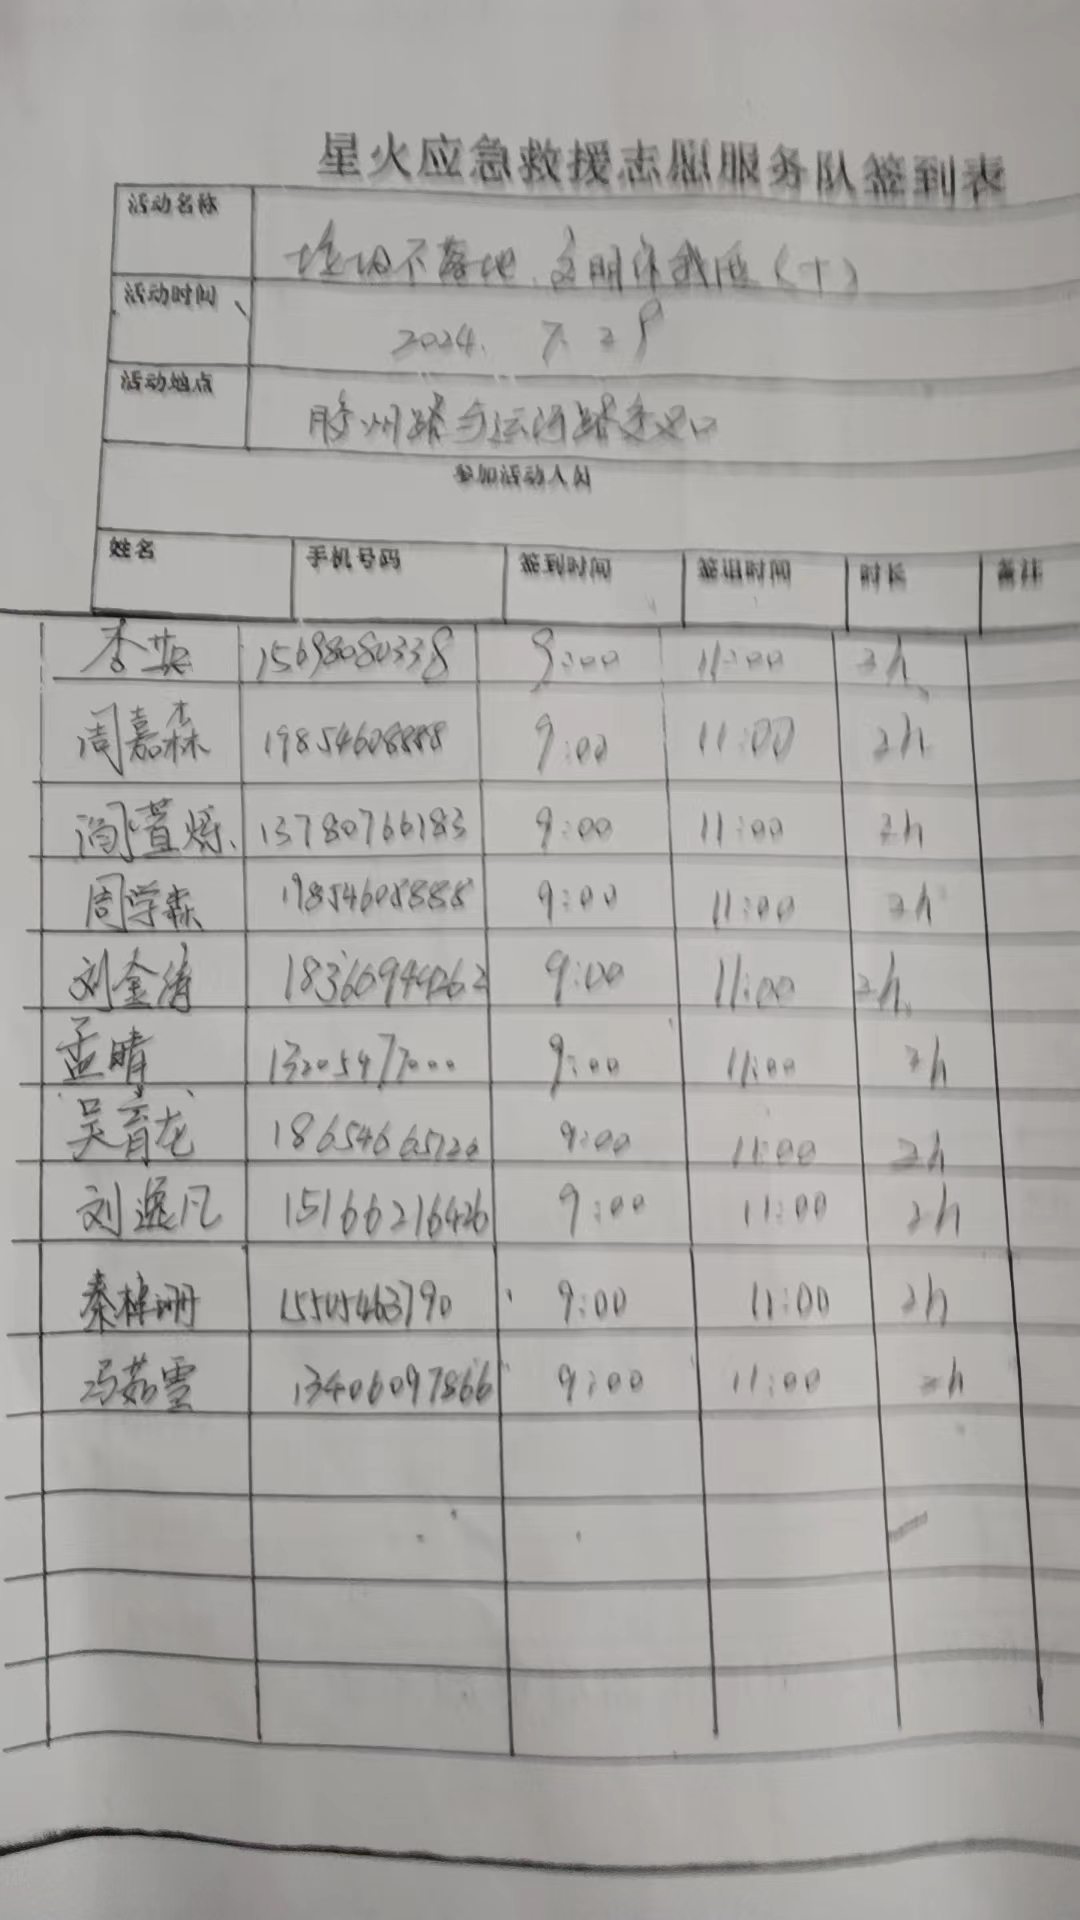 星火应急救援志愿服务队签到表
活动名称 垃圾不落地、文明伴我行（十）
活动时间 2024. 7. 29
活动地点 胶州路与运河路交叉口
参加活动人员
姓名 手机号码 签到时间 签出时间 时长 备注
李英 15698080338 9:00 11:00 2h
周嘉森 19854608888 9:00 11:00 2h
阎萱烁 13780766183 9:00 11:00 2h
周学森 19854608888 9:00 11:00 2h
刘金涛 18360944262 9:00 11:00 2h
孟晴 13205477000 9:00 11:00 2h
吴育龙 18654665120 9:00 11:00 2h
刘逸凡 15166216426 9:00 11:00 2h
秦梓珊 15505463790 9:00 11:00 2h
冯茹雪 13406097866 9:00 11:00 2h